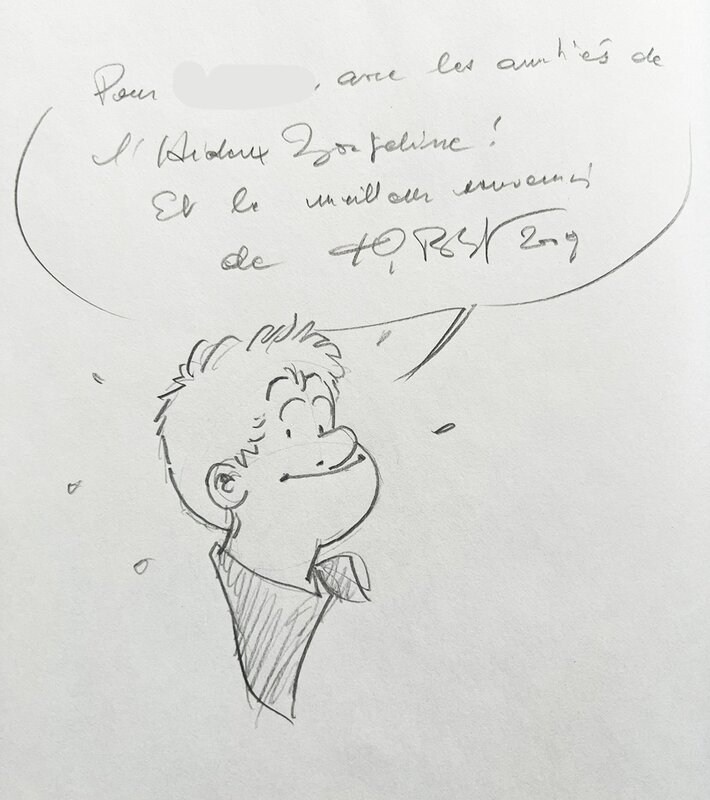 Pour , avec les amitiés de
l'Hideux
Et le meilleur souvenir
de 2009